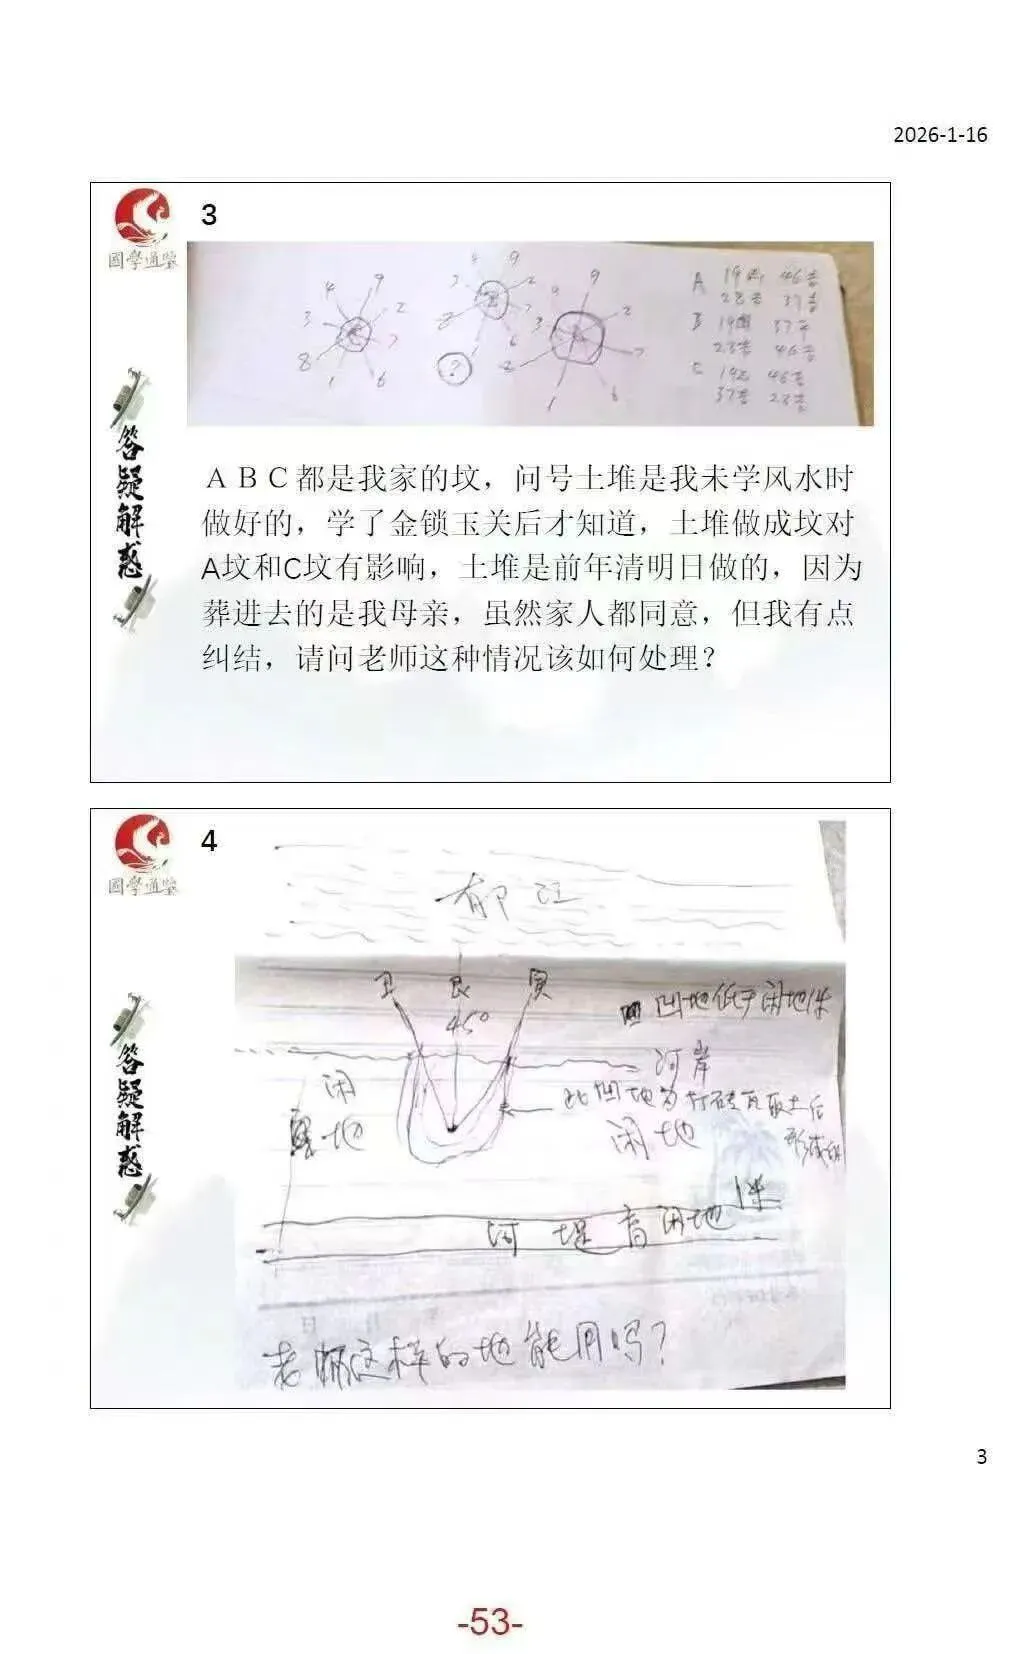 2026-1-16
國學通鑒
3
4 9 2
3 7
8 1 6
4 9
3 2
8 7
6
?
9
4 2
3 7
8 1 6
A 19凶 46吉
28吉 37吉
B 19凶 37平
28吉 46吉
C 19凶 46吉
37吉 28吉
答疑解惑
ＡＢＣ都是我家的坟，问号土堆是我未学风水时
做好的，学了金锁玉关后才知道，土堆做成坟对
A坟和C坟有影响，土堆是前年清明日做的，因为
葬进去的是我母亲，虽然家人都同意，但我有点
纠结，请问老师这种情况该如何处理？
國學通鑒
4
郁江
丑 艮 寅
45°
凹地低于闲地1米
河岸
闲
地
此凹地为打砖瓦取土后
形成的
闲地
河堤高闲地1米
答疑解惑
老师这样的地能用吗?
3
-53-